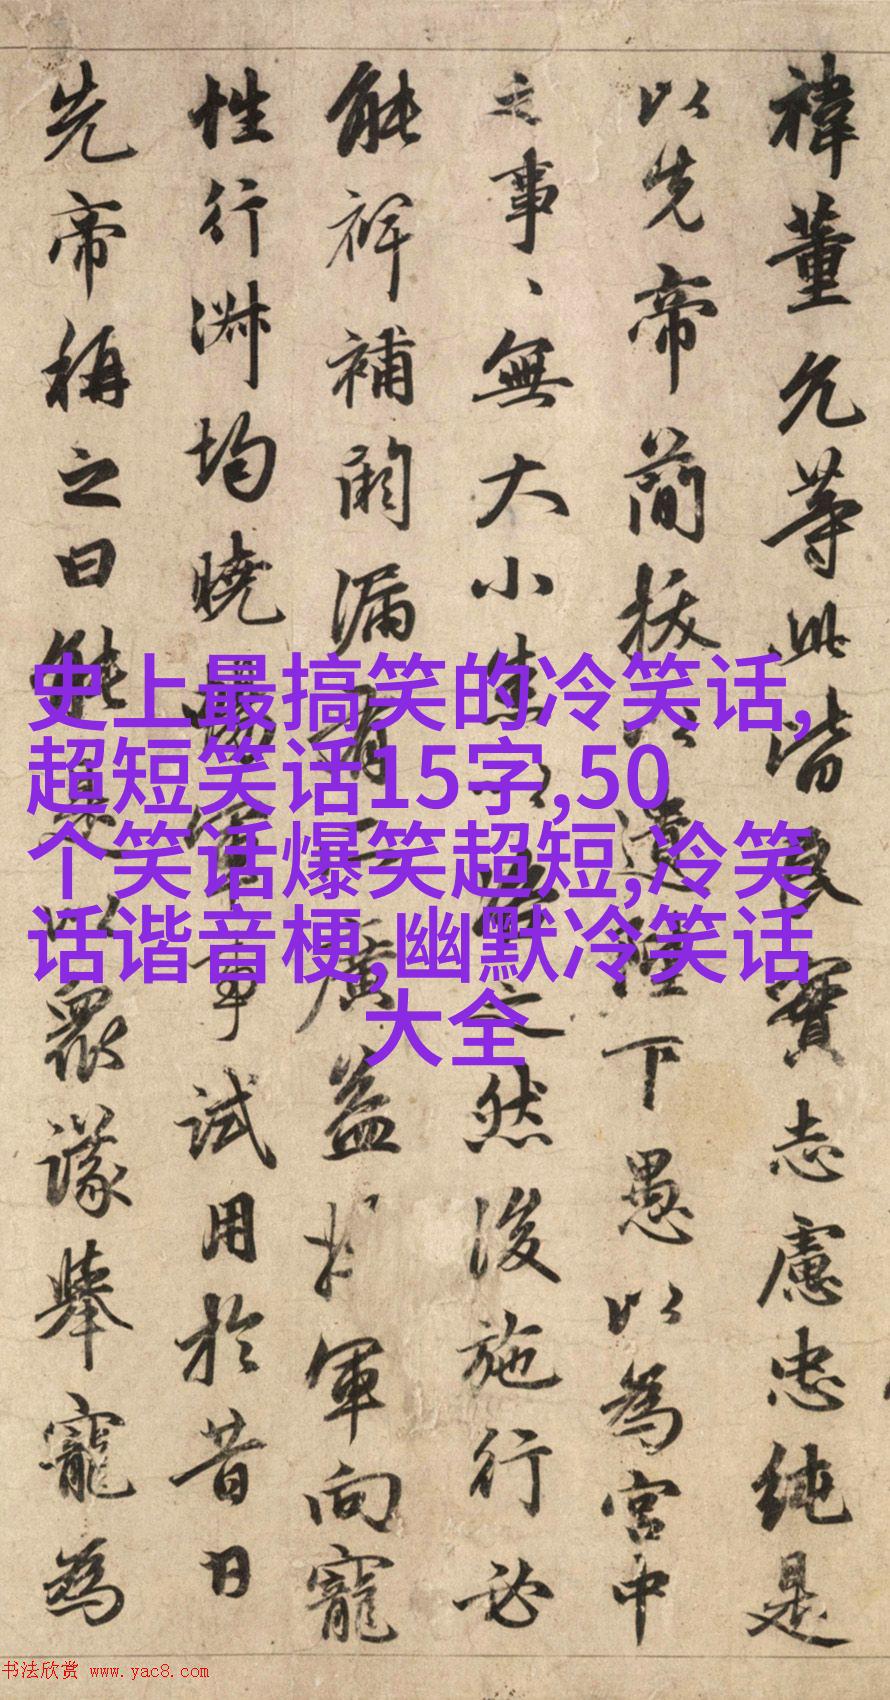 禕董允等此皆良實志慮忠純是
以先帝簡拔以遺陛下愚以為宮中
之事、無大小悉以咨之然後施行必
能裨補闕漏有所廣益將軍向寵
性行淋均曉暢軍事試用於昔日
先帝稱之曰能是以眾議舉寵為
史上最搞笑的冷笑话,
超短笑话15字,50
个笑话爆笑超短,冷笑
话谐音梗,幽默冷笑话
大全
书法欣赏 www.yac8.com